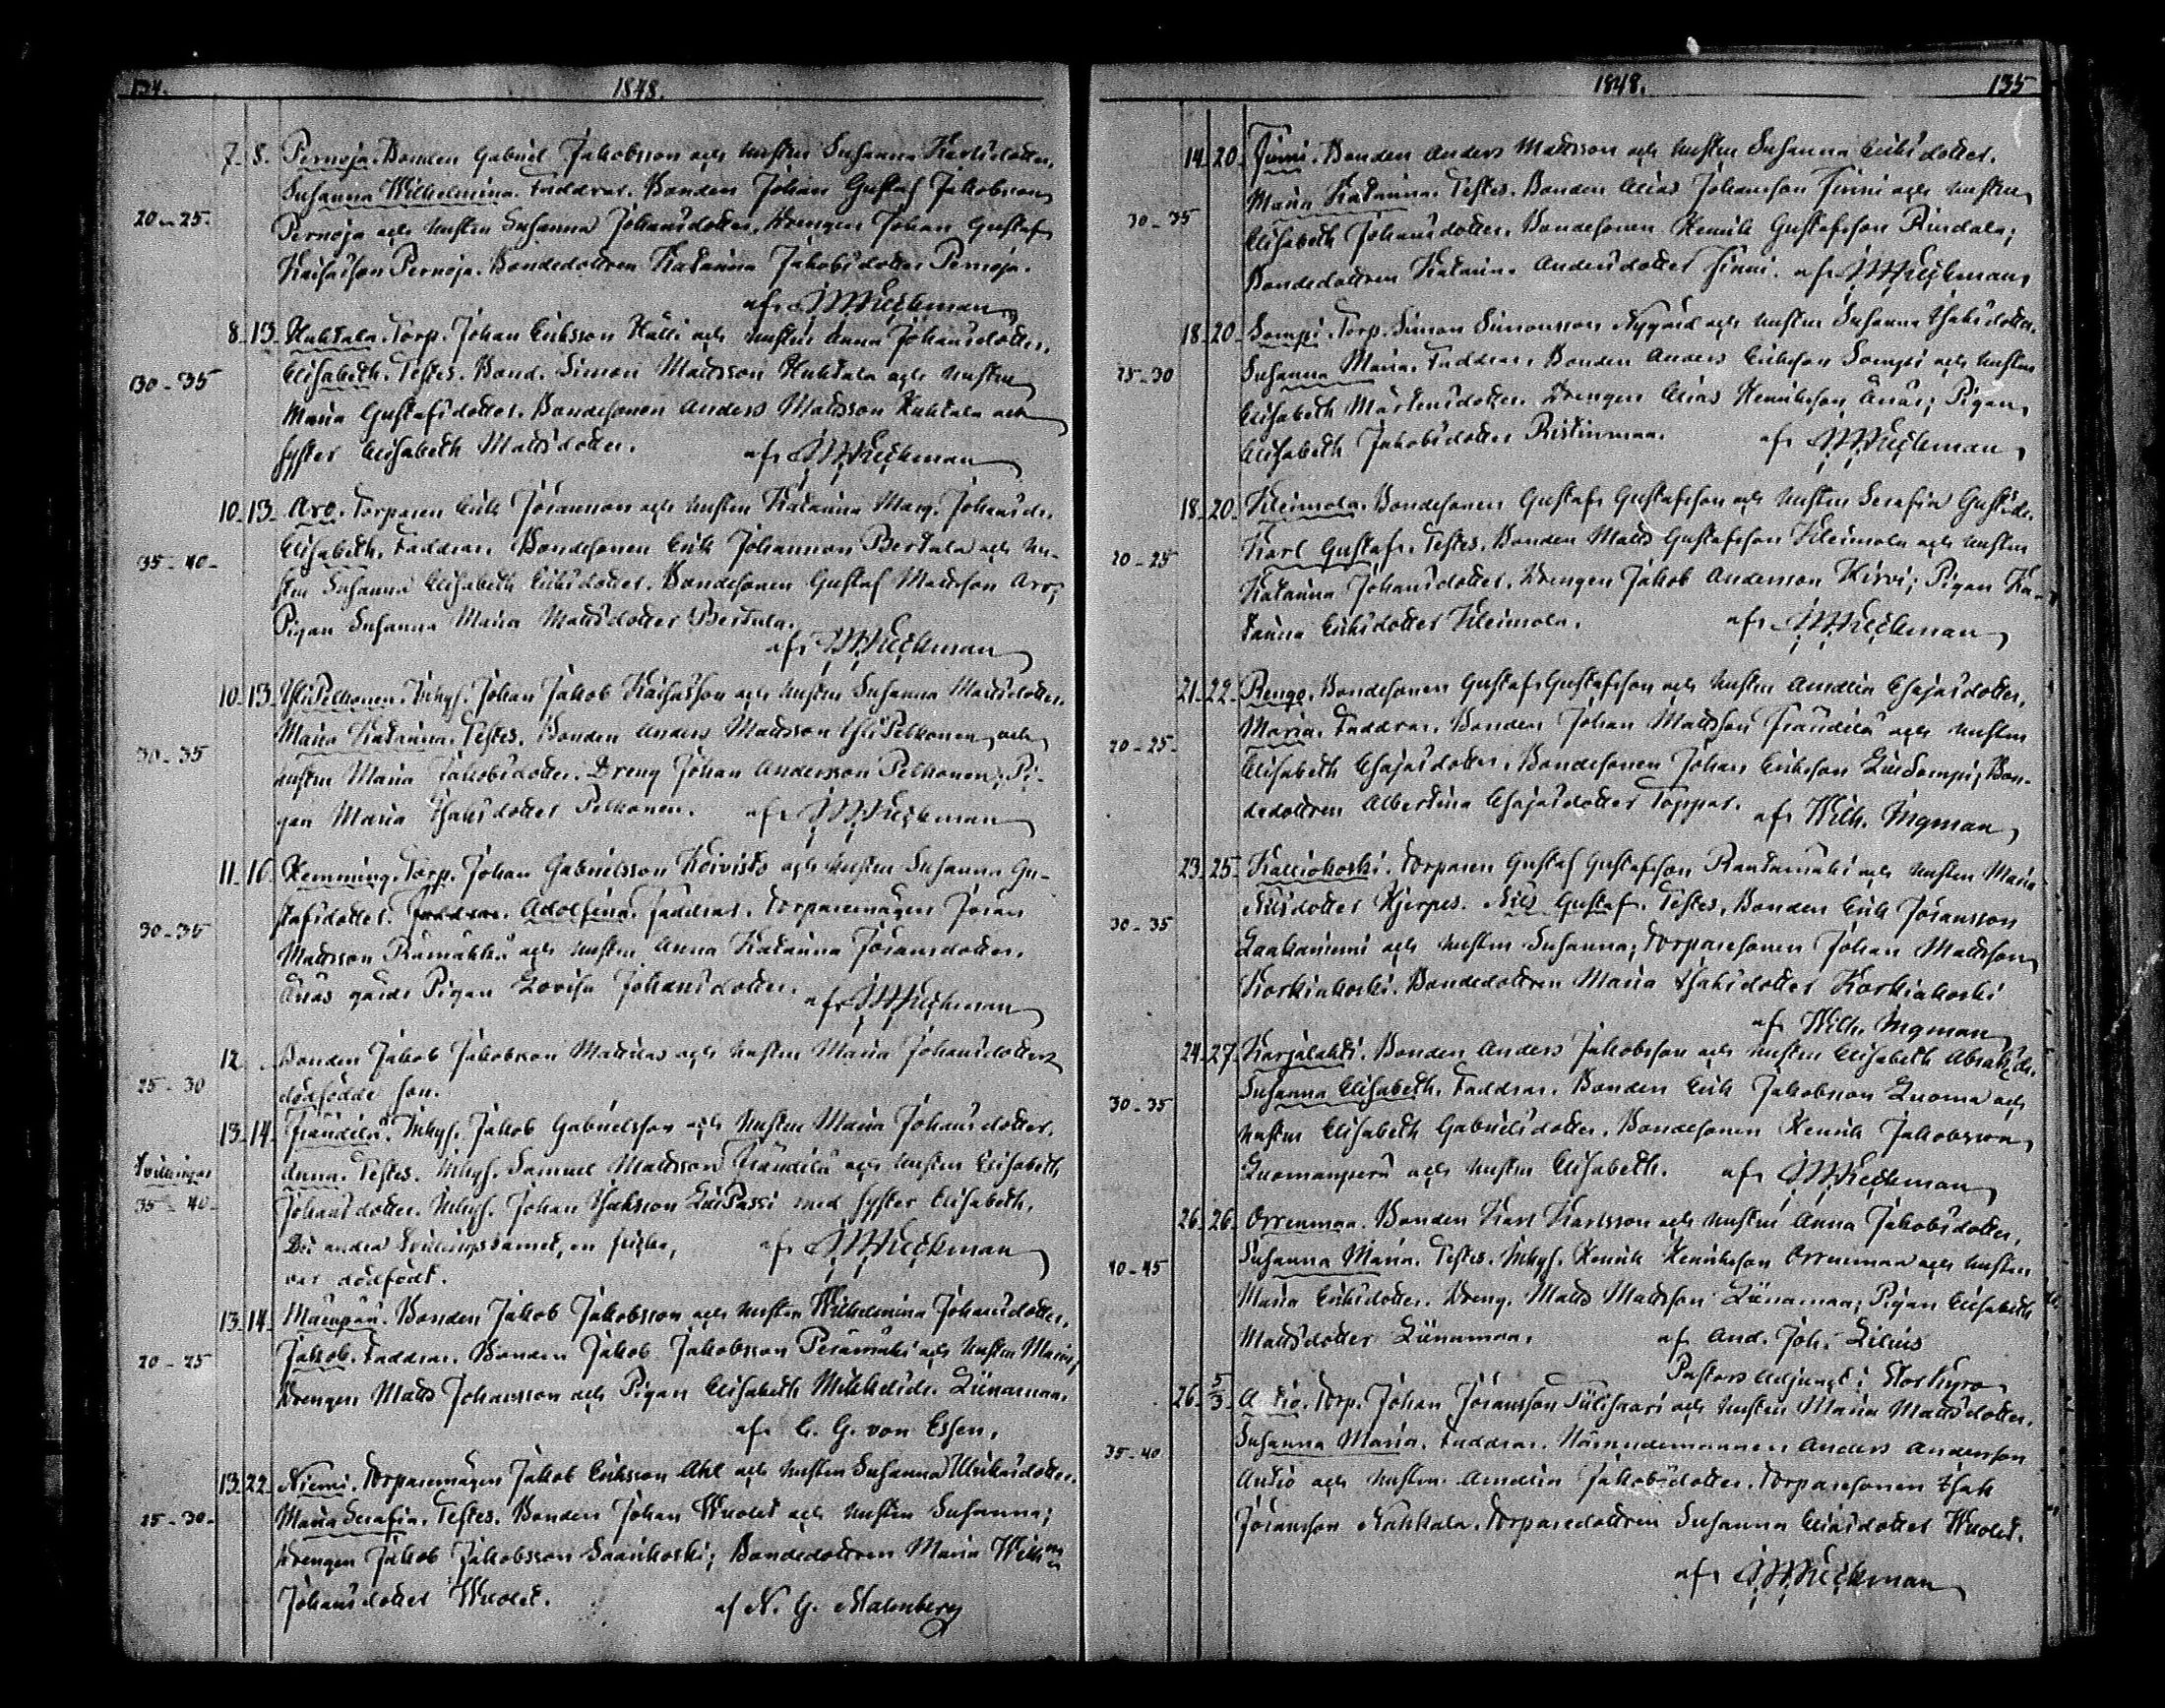 134. 1848.
7 8. Pernoja. Bonden Gabriel Jakobsson och hustru Susanna Karlsdotter.
Susanna Wilhelmina. Faddrar. Bonden Johan Gustaf Jakobsson
20-25. Pernoja och hustru Susanna Johansdotter, Drengen Johan Gustaf
Pernoja. Bondedottren Katarina Jakobsdotter Pernoja.
af
8 13. Huhtala. Torp. Johan Eriksson Kalli och hustru Anna Johansdotter.
30-35 Elisabeth. Testes. Bond. Simon Mattsson Huhtala och hustru
Maria Gustafsdotter. Bondesonen Anders Mattsson Huhtala och
syster Elisabeth Mattsdotter. af
10 13. Aro. Torparen Erik Jöransson och hustru Katarina Marg. Johansdr.
35-40- Elisabeth. Faddrar. Bondesonen Erik Johansson Bertula och hu-
stru Susanna Elisabeth Eriksdotter. Bondesonen Gustaf Mattsson Aro;
Pigan Susanna Maria Mattsdotter Bertula.
af
10 13. YliPelkonen. Inhys. Johan Jakob och hustru Susanna Mattsdotter.
Maria Katarina. Testes. Bonden Anders Mattsson YliPelkonen och
30-35 hustru Maria Jakobsdotter. Dreng Johan Andersson Pelkonen; Pi-
gan Maria Isaksdotter Pelkonen. af
11 16. Hemming. Torp. Johan Gabrielsson Koivisto och hustru Susanna Gu-
stafsdotter. Faddrar. Adolfina. Faddrar. Torparemågen Jöran
30-35 Mattsson Rämäkkä och hustru Anna Katarina Jöransdotter.
Ånäs gårds Pigan Lovisa Johansdotter. af
12. Bonden Jakob Jakobsson Mattilas och hustru Maria Johansdotters
25-30 dödfödde son.
13 14. Frändilä. Inhys. Jakob Gabrielsson och hustru Maria Johansdotter.
Tvillingar Anna. Testes. Inhys. Samuel Mattsson Frändilä och hustru Elisabeth
35-40- Johansdotter. Inhys. Johan Isaksson LuiPassi med syster Elisabeth.
Det andra tvillingsbarnet, en flicka, af
var dödfödt.
13 14. Mäenpää. Bonden Jakob Jakobsson och hustru Wilhelmina Johansdotter.
20-25 Jakob. Faddrar. Bonden Jakob Jakobsson Perämäki och hustru Maria;
Drengen Matts Johansson och Pigan Elisabeth Mikkelsdr. Liinamaa.
af C. G. von Essen.
13 22. Niemi. Torparemågen Jakob Eriksson Ahl och hustru Susanna Mickelsdotter.
25-30- Maria Serafia. Testes. Bonden Johan Wuolet och hustru Susanna;
Drengen Jakob Jakobsson Saarikoski; Bondedottren Maria Wilh:na
Johansdotter Wuolet. af N. G. Malmberg
1848. 135
14 20. Finni. Bonden Anders Mattsson och hustru Susanna Eriksdotter.
30-35 Maria Katarina. Testes. Bonden Elias Johansson Finni och hustru
Elisabeth Johansdotter. Bondesonen Henrik Gustafsson Rindala;
Bondedottren Katarina Andersdotter Finni. af
18 20. Sompi. Torp. Simon Simonsson Nygård och hustru Susanna Isaksdotter.
25-30 Susanna Maria. Faddrar. Bonden Anders Eriksson Sompi och hustru
Elisabeth Mårtensdotter. Drengen Elias Henriksson Ånäs; Pigan
Elisabeth Jakobsdotter Ristinmaa. af
18 20. Kleimola. Bondesonen Gustaf Gustafsson och hustru Serafia Gustsdr.
20-25 Karl Gustaf. Testes. Bonden Matts Gustafsson Kleimola och hustru
Katarina Johansdotter. Drengen Jakob Andersson Hirvi; Pigan Ka-
tarina Eriksdotter Kleimola. af
21 22. Rengo. Bondesonen Gustaf Gustafsson och hustru Amalia Esajasdotter.
20-25- Maria. Faddrar. Bonden Johan Mattsson Frändilä och hustru
Elisabeth Esajasdotter. Bondesonen Johan Eriksson LuiSompi; Bon-
dedottren Albertina Esajasdotter Toppar.
af Wilh. Ingman
23 25. Kalliokoski. Torparen Gustaf Gustafsson Rantamäki och hustru Maria
30-35 Nilsdotter Hjerpes. Nils Gustaf. Testes. Bonden Erik Jöransson
Laahaniemi och hustru Susanna; Torparesonen Johan Mattsson
Korkiakoski. Bondedottren Maria Isaksdotter Korkiakoski
af Wilh. Ingman
24 27. Karjalahti. Bonden Anders Jakobsson och hustru Elisabeth Abrahsdr.
30-35 Susanna Elisabeth. Faddrar. Bonden Erik Jakobsson Luoma och
hustru Elisabeth Gabrielsdotter. Bondesonen Henrik Jakobsson
Luomanperä och hustru Elisabeth. af
26 26. Orrenmaa. Bonden Karl Karlsson och hustru Anna Jakobsdotter.
40-45 Susanna Maria. Testes. Inhys. Henrik Henriksson Orrenmaa och hustru
Maria Eriksdotter. Dreng. Matts Mattsson Liinamaa; Pigan Elisabeth
Mattsdotter Liinamaa. af And. Joh. Lilius
Pastors Adjunct i Storkyro
26 5/3 Autio. Torp. Johan Jöransson Tulisaari och hustru Maria Mattsdotter.
35-40 Susanna Maria. Faddrar. Nämndemannen Anders Andersson
Autio och hustru Amalia Jakobsdotter. Torparesonen Isak
Jöransson Kakkala. Torparedottren Susanna Eliasdotter Wuolet.
af